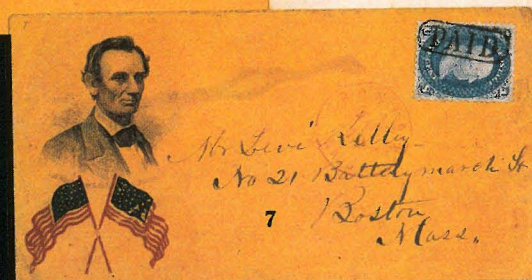 PAID
Mr Levi Lilley
No 21 Batterymarch St
7
Boston
Mass.